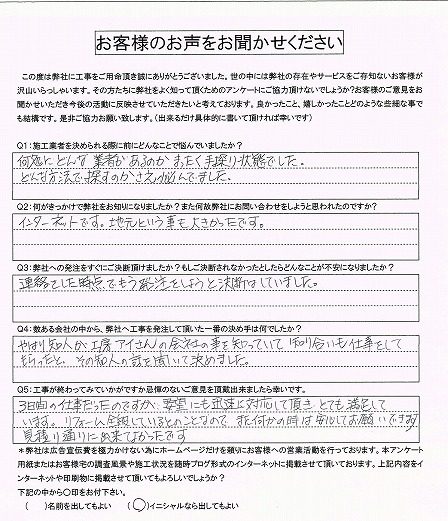 お客様のお声をお聞かせください
この度は弊社に工事をご用命頂き誠にありがとうございました。世の中には弊社の存在やサービスをご存知ないお客様が
沢山いらっしゃいます。その方たちに弊社をよく知って頂くためのアンケートにご協力頂けないでしょうか?お客様のご意見をお
聞かせいただき今後の活動に反映させていただきたいと考えております。良かったこと、嬉しかったことどのような些細な事で
も結構です。是非ご協力お願い致します。(出来るだけ具体的に書いて頂ければ幸いです)
Q1:施工業者を決められる際に前にどんなことで悩んでいましたか?
何処にどんな業者があるのか まったく手探り状態でした。
どんな方法で探すのかさえ悩んでました。
Q2:何がきっかけで弊社をお知りになりましたか?また何故弊社にお問い合わせをしようと思われたのですか?
インターネットです。地元という事も大きかったです。
Q3:弊社への発注をすぐにご決断頂けましたか?もしご決断されなかったとしたらどんなことが不安になりましたか?
連絡をした時点でもう発注をしようと決断はしていました。
Q4:数ある会社の中から、弊社へ工事を発注して頂いた一番の決め手は何でしたか?
やはり知人が工房アイさんの会社の事を知っていて、知り合いも仕事をして
もらったと、その知人の話を聞いて決めました。
Q5:工事が終わってみていかがですか忌憚のないご意見を頂戴出来ましたら幸いです。
3日間の仕事だったのですが、要望にも迅速に対応して頂き とても満足して
います。リフォーム全般にしているとのことなので また何かの時は安心してお願いできます
見積り通りに出来てよかったです
*弊社は広告宣伝費を極力かけない為にホームページだけを頼りにお客様への営業活動を行っております。本アンケート
用紙またはお客様宅の調査風景や施工状況を随時ブログ形式のインターネットに掲載させて頂いております。上記内容をイ
ンターネットや印刷物に掲載させて頂いてもよろしいでしょうか?
下記の中から〇印をお付下さい。
( )名前を出してもよい (〇)イニシャルなら出してもよい